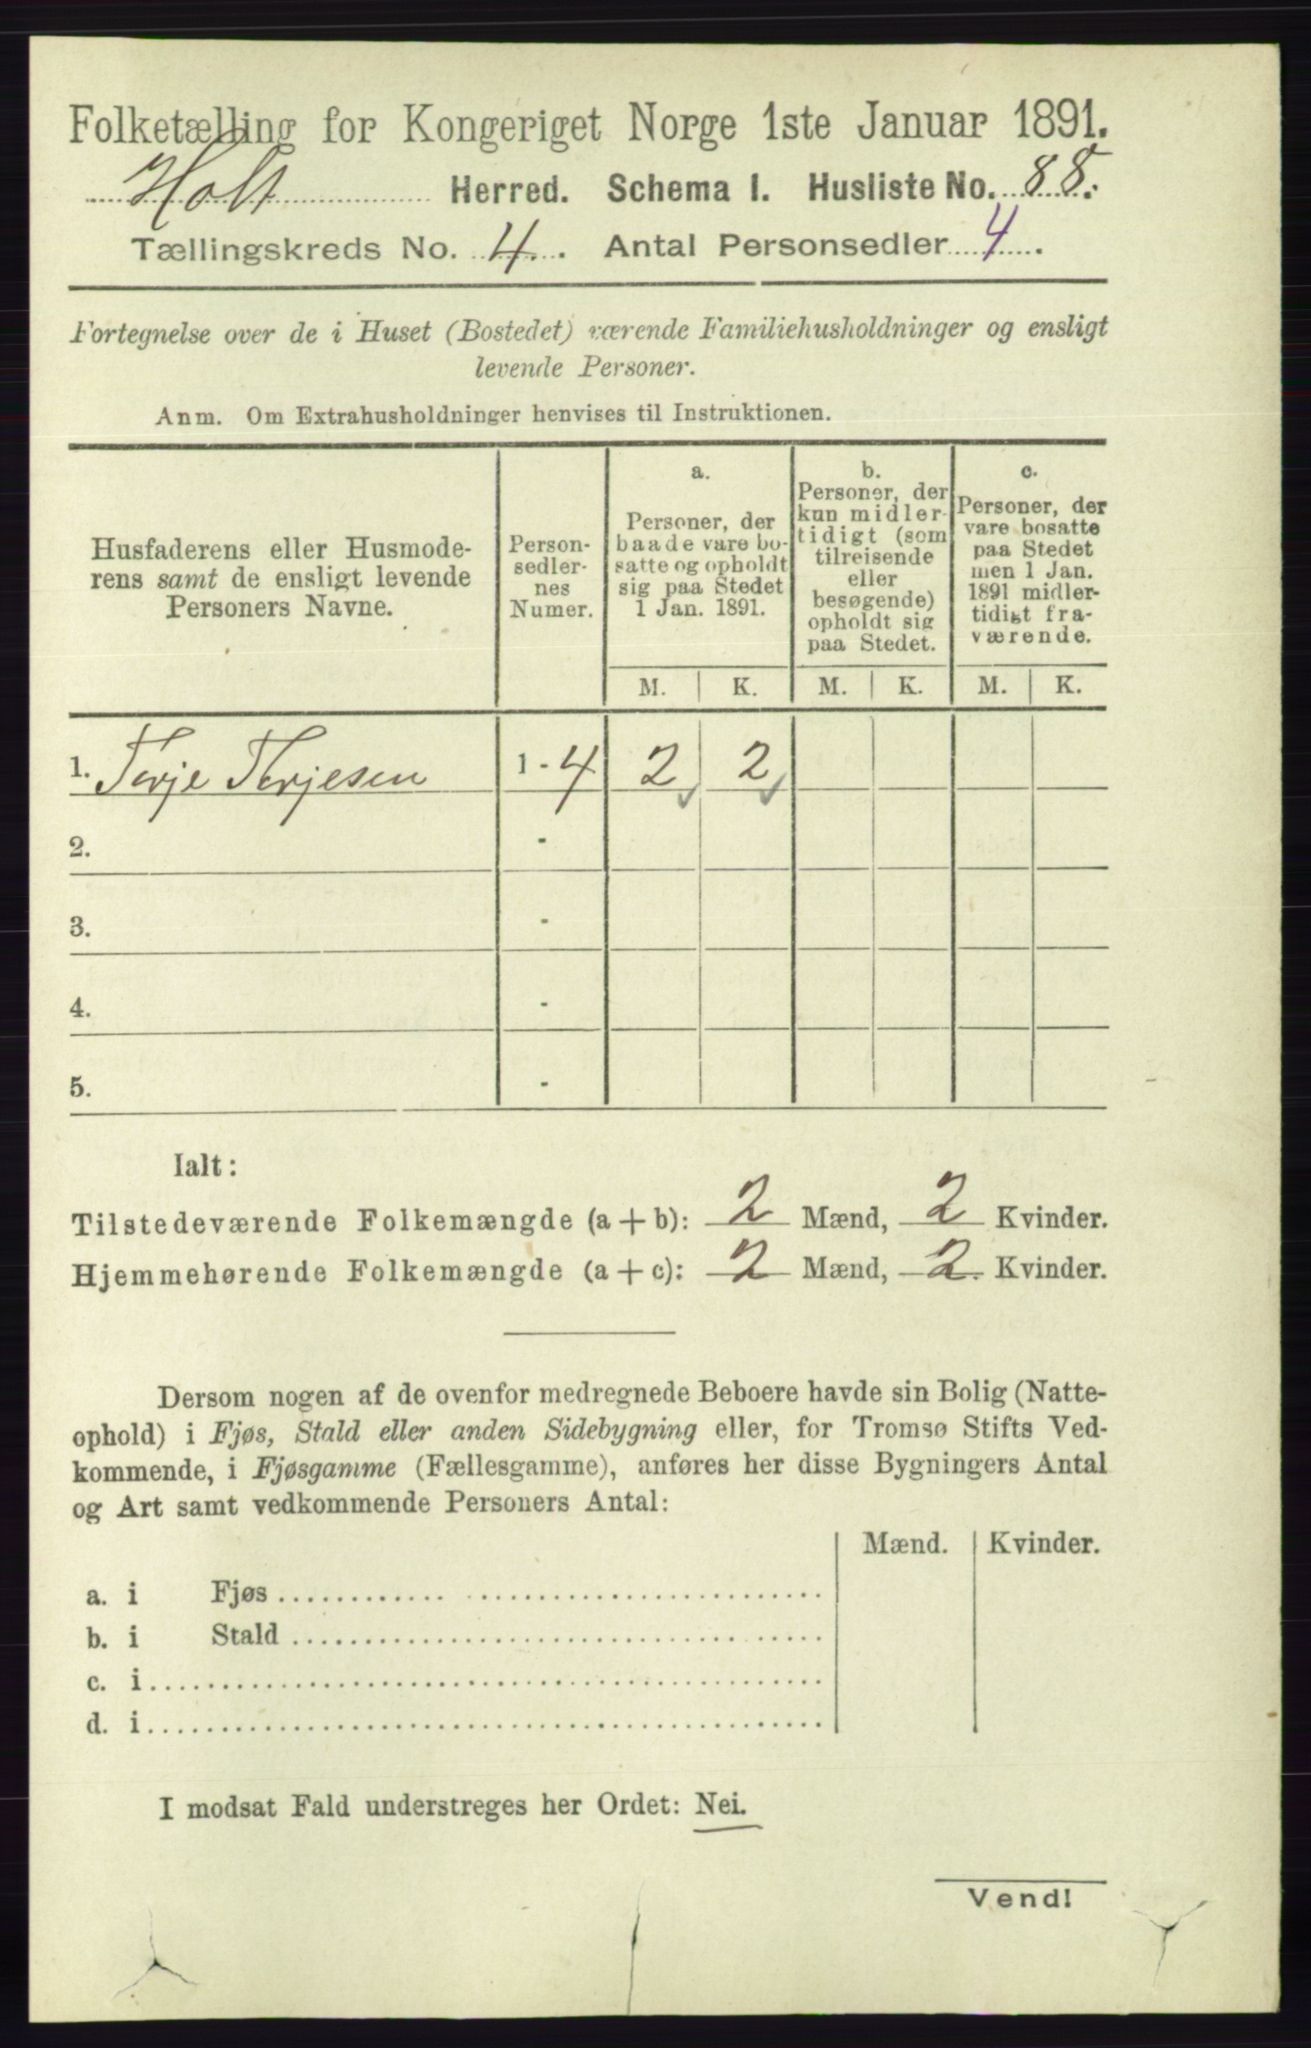 Folketælling for Kongeriget Norge 1ste Januar 1891.
Holt Herred. Schema I. Husliste No. 88.
Tællingskreds No. 4. Antal Personsedler 4.
Fortegnelse over de i Huset (Bostedet) værende Familiehusholdninger og ensligt
levende Personer.
Anm. Om Extrahusholdninger henvises til Instruktionen.
Husfaderens eller Husmode-
rens samt de ensligt levende
Personers Navne.
Person-
sedler-
nes
Numer.
a.
Personer, der
baade vare bo-
satte og opholdt
sig paa Stedet
1 Jan. 1891.
b.
Personer, der
kun midler-
tidigt (som
tilreisende
eller
besøgende)
opholdt sig
paa Stedet.
c.
Personer, der
vare bosatte
paa Stedet
men 1 Jan.
1891 midler-
tidigt fra-
værende.
M. K. M. K. M. K.
1. Terje Terjesen 1 - 4 2 2
2. -
3. -
4. -
5. -
Ialt:
Tilstedeværende Folkemængde (a + b): 2 Mænd, 2 Kvinder.
Hjemmehørende Folkemængde (a + c): 2 Mænd, 2. Kvinder.
Dersom nogen af de ovenfor medregnede Beboere havde sin Bolig (Natte-
ophold) i Fjøs, Stald eller anden Sidebygning eller, for Tromsø Stifts Ved-
kommende, i Fjøsgamme (Fællesgamme), anføres her disse Bygningers Antal
og Art samt vedkommende Personers Antal:
Mænd. Kvinder.
a. i Fjøs
b. i Stald
c. i
d. i
I modsat Fald understreges her Ordet: Nei.
Vend!